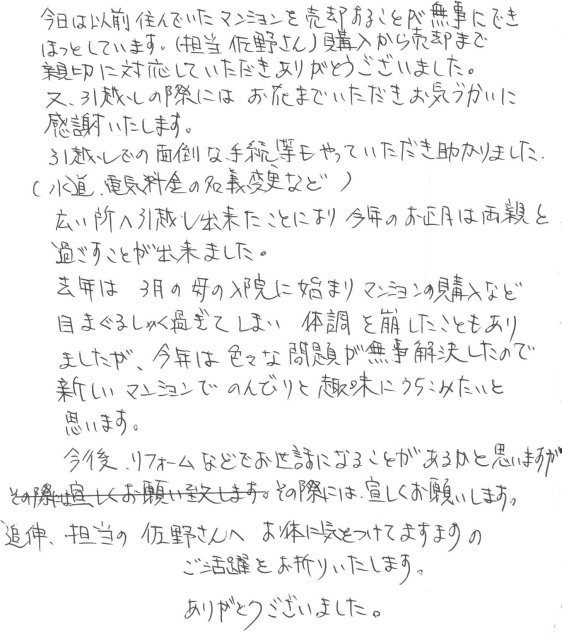 今日は以前住んでいたマンションを売却あることが無事にでき
ほっとしています。(担当佐野さん)購入から売却まで
親切に対応していただきありがとうございました。
又、引越しの際には お花までいただきお気づかいに
感謝いたします。
引越しでの面倒な手続等もやっていただき助かりました。
(水道、電気料金の名義変更など)
広い所へ引越し出来たことにより今年のお正月は両親と
過ごすことが出来ました。
去年は 3月の母の入院に始まりマンションの購入など
目まぐるしく過ぎてしまい 体調を崩したこともあり
ましたが、今年は色々な問題が無事解決したので
新しいマンションでのんびりと趣味にうちこみたいと
思います。
今後、リフォームなどでお世話になることがあるかと思いますが
その際は宜しくお願い致します。その際には宜しくお願いします。
追伸、担当の佐野さんへ お体に気をつけてますますの
ご活躍をお祈りいたします。
ありがとうございました。